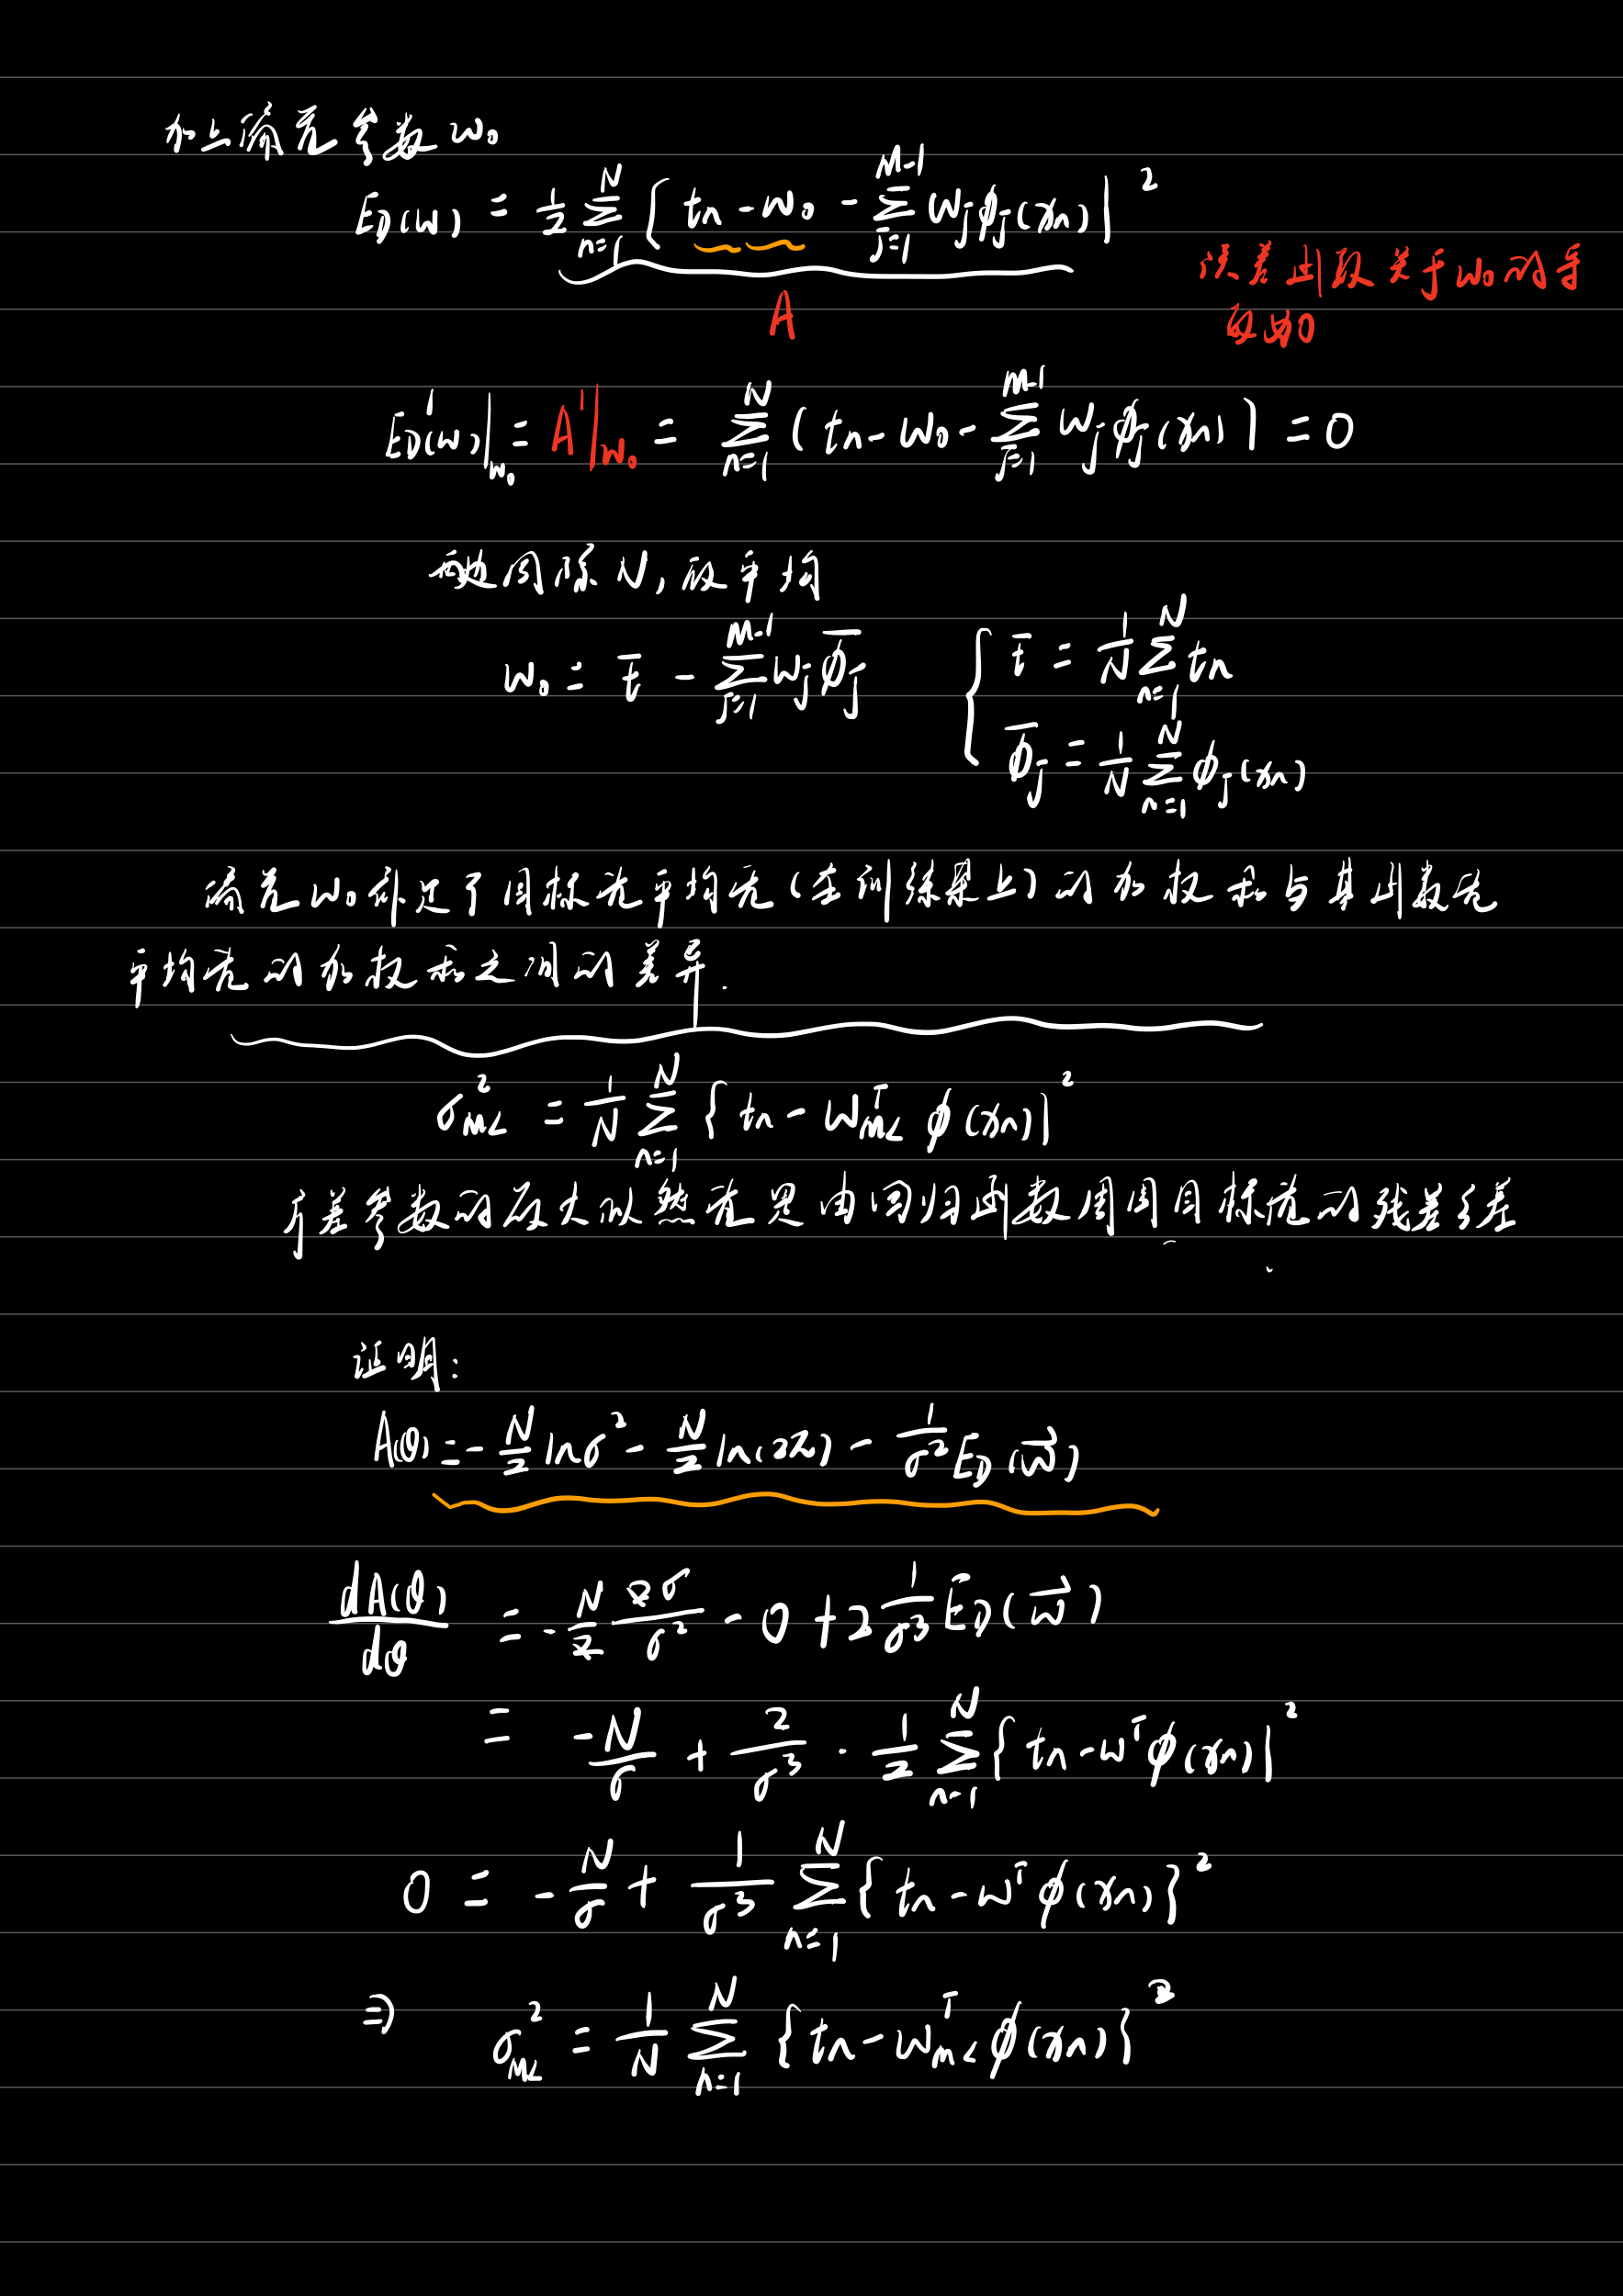 加上偏差参数 w₀
E_D(w) = 1/2 Σ_{n=1}^{N} { tn - w₀ - Σ_{j=1}^{M-1} w_j ϕ_j(xn) }²
A
误差函数关于w₀的导
数为0
E_D'(w)|_{w₀} = A'|_{w₀} = Σ_{n=1}^{N} ( tn - w₀ - Σ_{j=1}^{M-1} w_j ϕ_j(xn) ) = 0
两边同除N, 取平均
w₀ = t̄ - Σ_{j=1}^{M-1} w_j ϕ̄_j { t̄ = 1/N Σ_{n=1}^{N} tn
ϕ̄_j = 1/N Σ_{n=1}^{N} ϕ_j(xn)
偏差w₀补足了目标值平均值(在训练集上)的加权和与基函数值
平均值的加权和之间的差异.
σ²_{ML} = 1/N Σ_{n=1}^{N} { tn - w^T_{ML} ϕ(xn) }²
方差参数的最大似然值是由回归函数周围目标值的残差方差
证明:
A(θ) = - N/2 lnσ² - N/2 ln(2π) - 1/σ² E_D(w⃗)
dA(θ)/dθ = - N/2 2σ/σ² - 0 + 2 1/σ³ E_D(w⃗)
= -N/σ + 2/σ³ · 1/2 Σ_{n=1}^{N} { tn - w^T ϕ(xn) }²
0 = - N/σ + 1/σ³ Σ_{n=1}^{N} { tn - w^T ϕ(xn) }²
⇒ σ²_{ML} = 1/N Σ_{n=1}^{N} { tn - w^T_{ML} ϕ(xn) }²